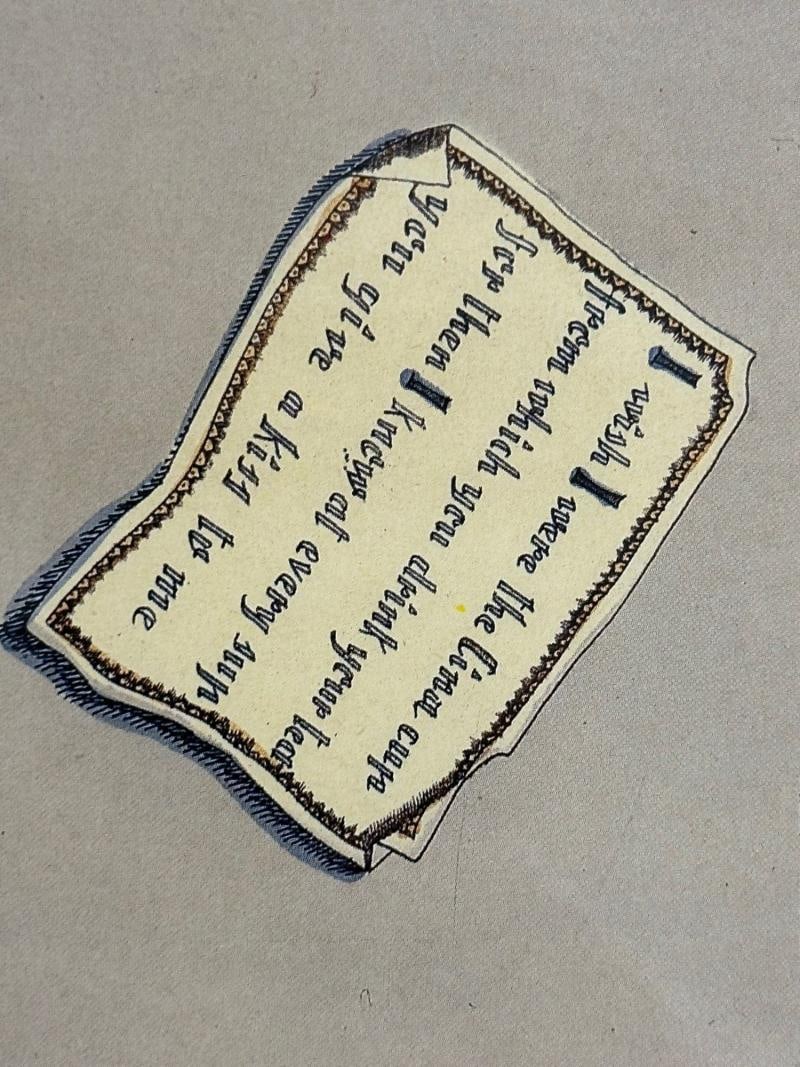 I wish I were the Cina cup
from which you drink your tea
for then I knew at every sup
you give a kiss to me